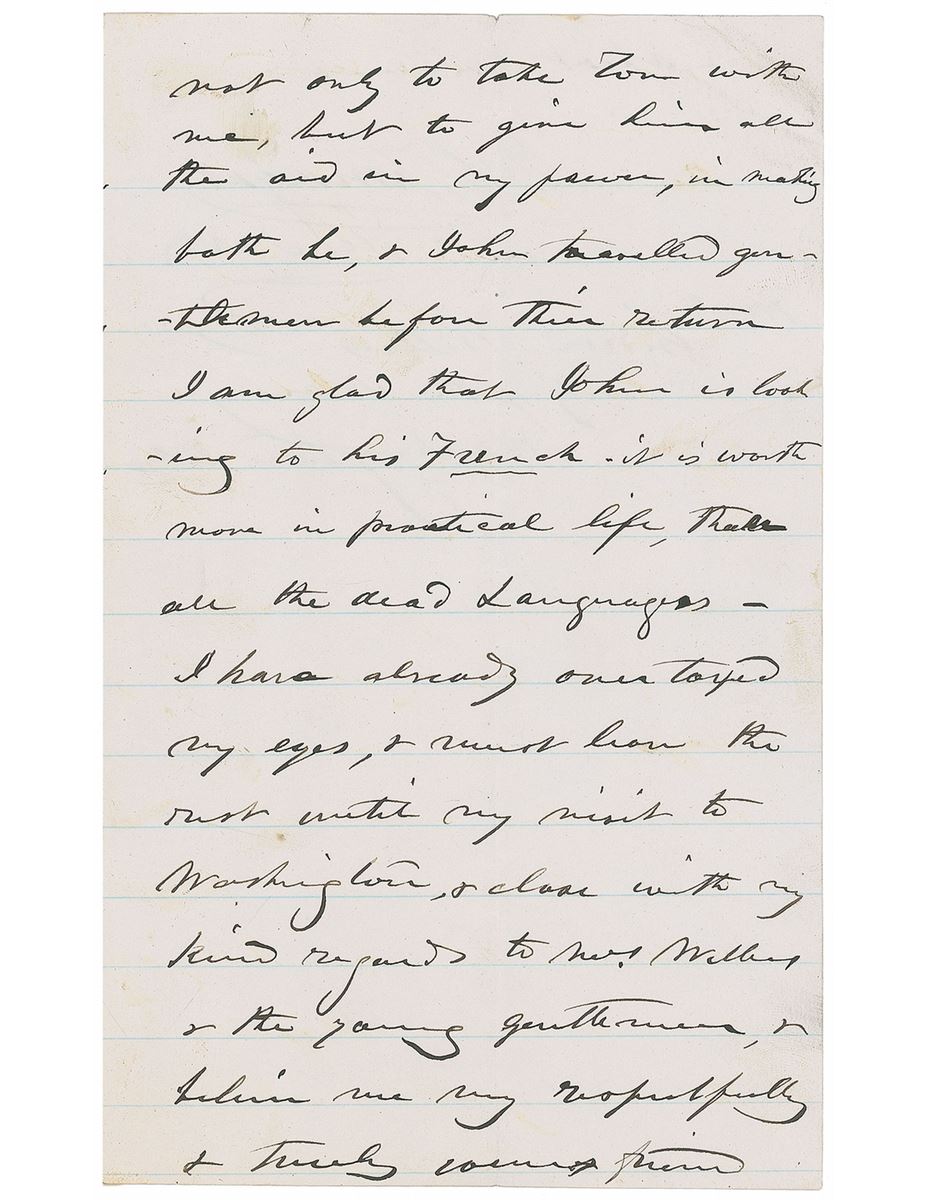 not only to take Tom with
me, but to give him all
the aid in my power, in making
both he, & John travelled gen-
-tlemen before their return
I am glad that John is look
-ing to his French - it is worth
more in practical life, than
all the dead Languages -
I have already over taxed
my eyes, & must leave the
rest until my visit to
Washington, & close with my
kind regards to Mrs. Welles
& the young gentlemen, &
believe me my respectfully
& truly your friend